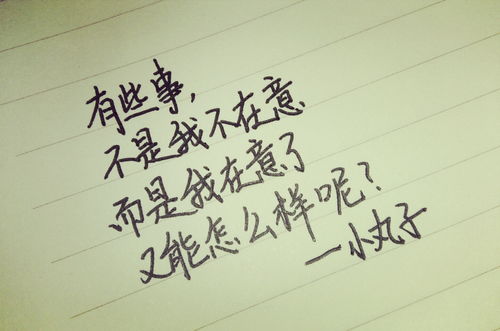 有些事,
不是我不在意
而是我在意了
又能怎么样呢?
—小丸子